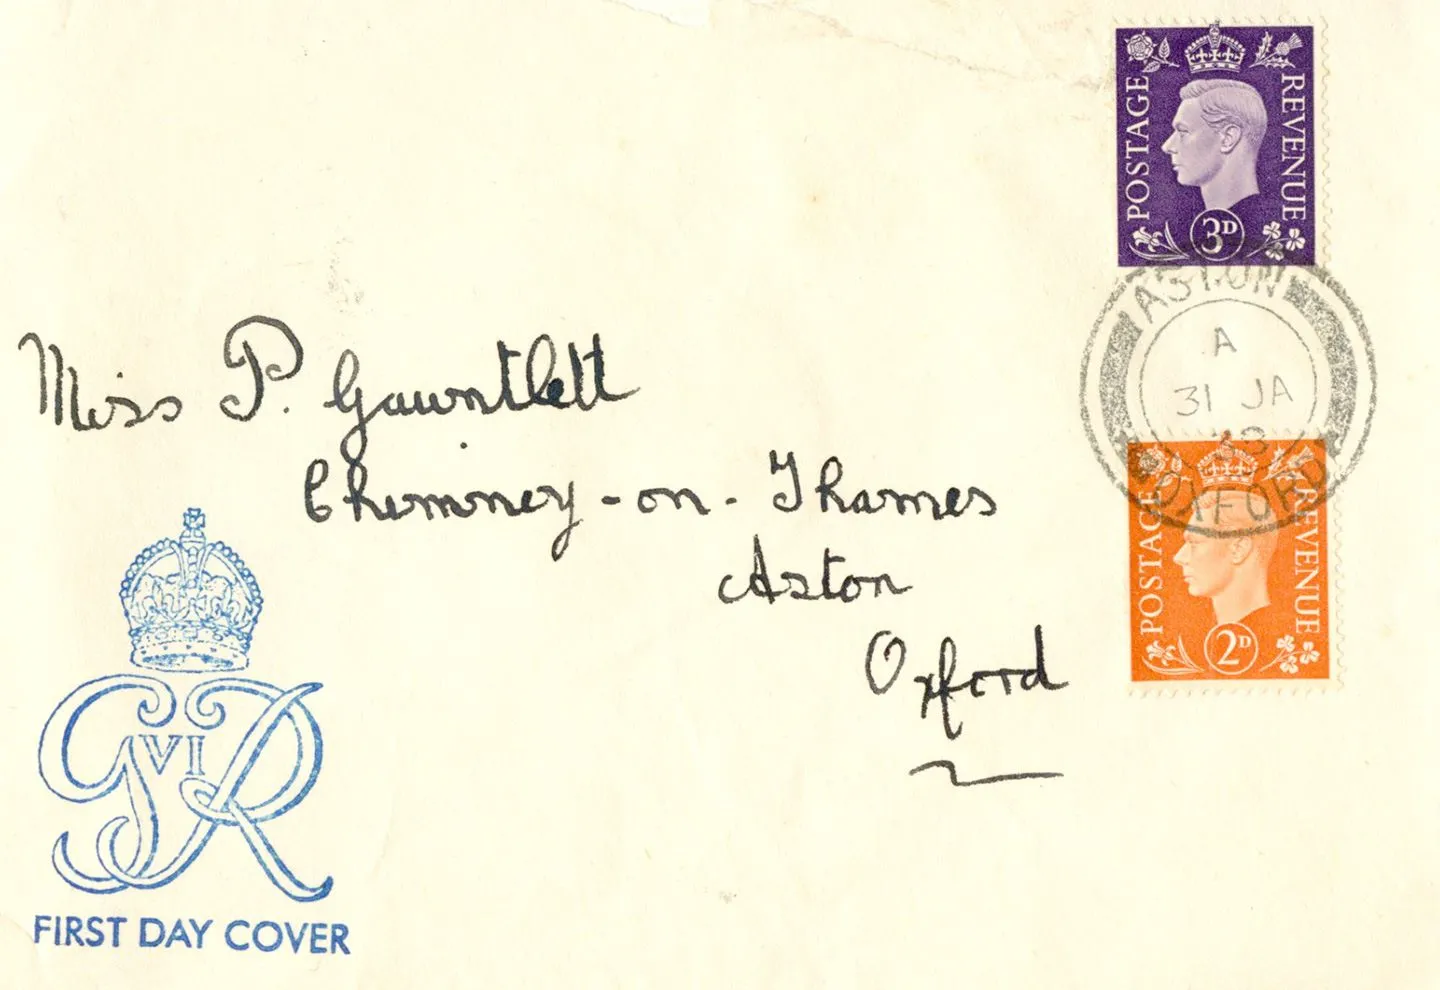 POSTAGE
REVENUE
3D
ASTON
A
31 JA
38
OXFORD
POSTAGE
REVENUE
2D
Miss P. Gauntlett
Chimney-on-Thames
Aston
Oxford
G VI R
FIRST DAY COVER